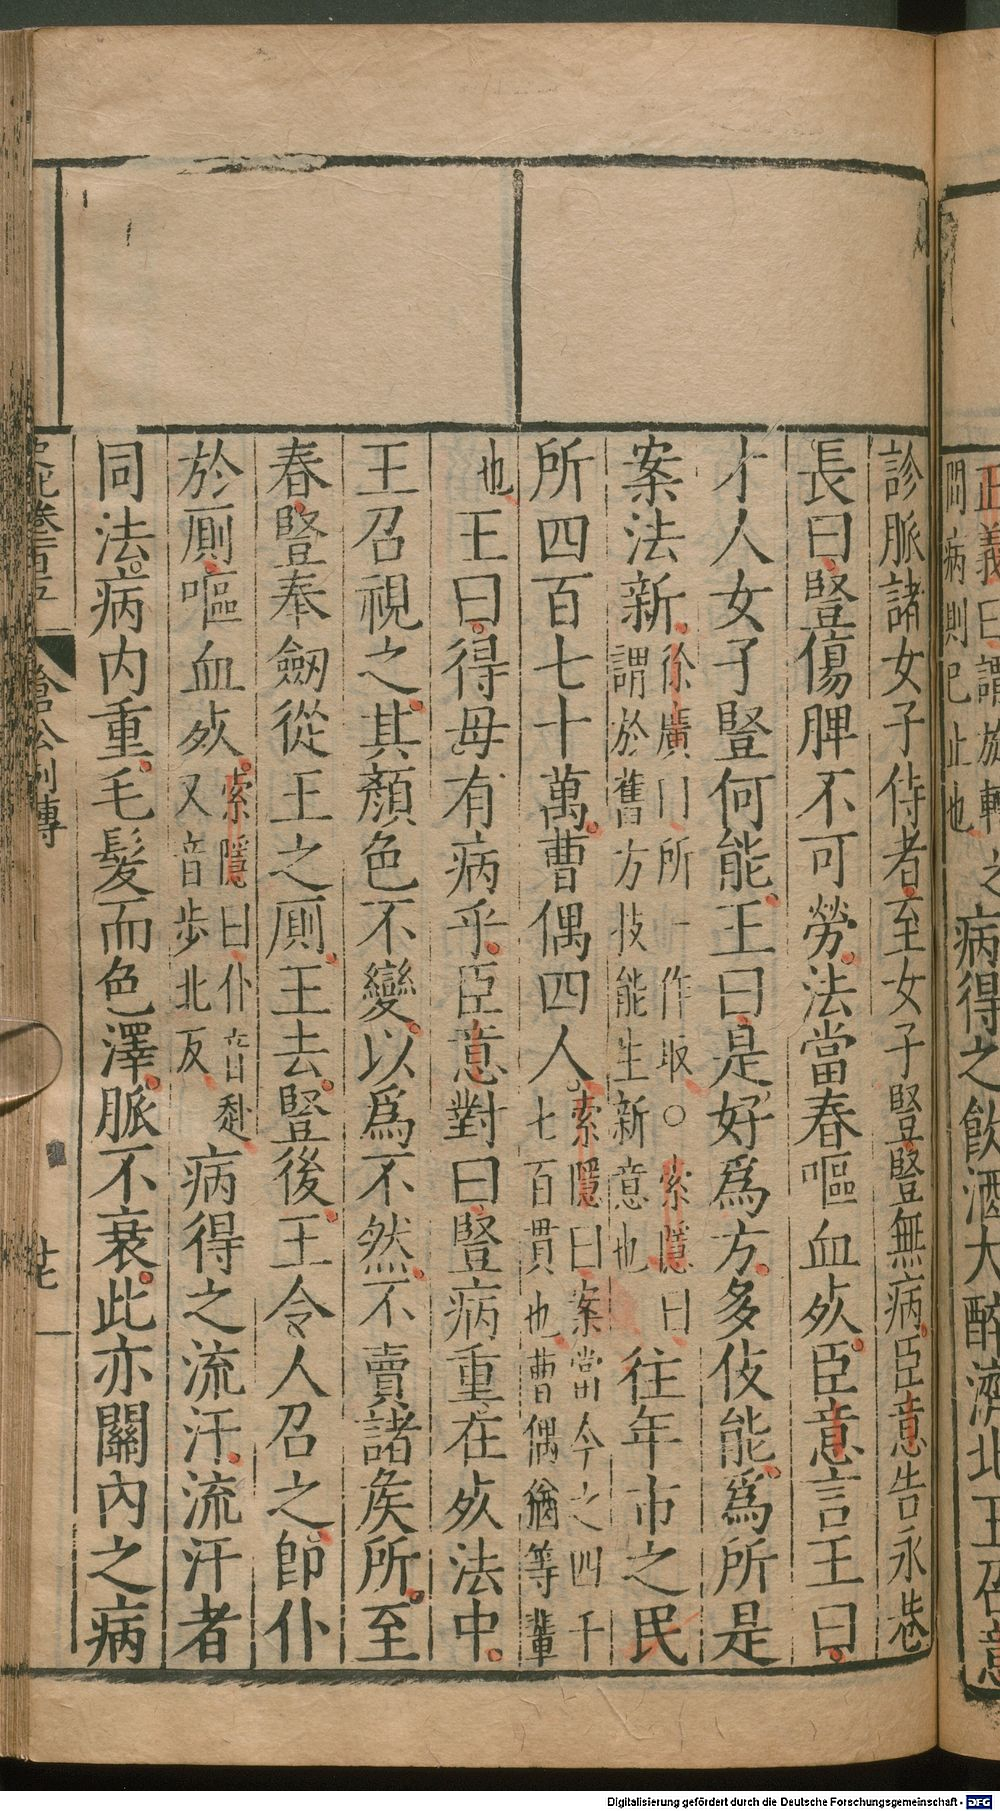 正義曰謂旋轉之
問病則已止也
病得之飲酒大醉濟北王召意
診脈諸女子侍者至女子豎豎無病臣意告永巷
長曰豎傷脾不可勞法當春嘔血死臣意言王曰
才人女子豎何能王曰是好爲方多伎能爲所是
案法新
徐廣曰所一作取○索隱曰
謂於舊方技能生新意也
往年市之民
所四百七十萬曹偶四人
索隱曰案當今之四千
七百貫也曹偶猶等輩
也
王曰得毋有病乎臣意對曰豎病重在死法中
王召視之其顏色不變以爲不然不賣諸侯所至
春豎奉劒從王之厠王去豎後王令人召之卽仆
於厠嘔血死
索隱曰仆音赴
又音步北反
病得之流汗流汗者
同法病內重毛髮而色澤脈不衰此亦關內之病
史記卷一百五
倉公列傳
廿七
Digitalisierung gefördert durch die Deutsche Forschungsgemeinschaft - DFG